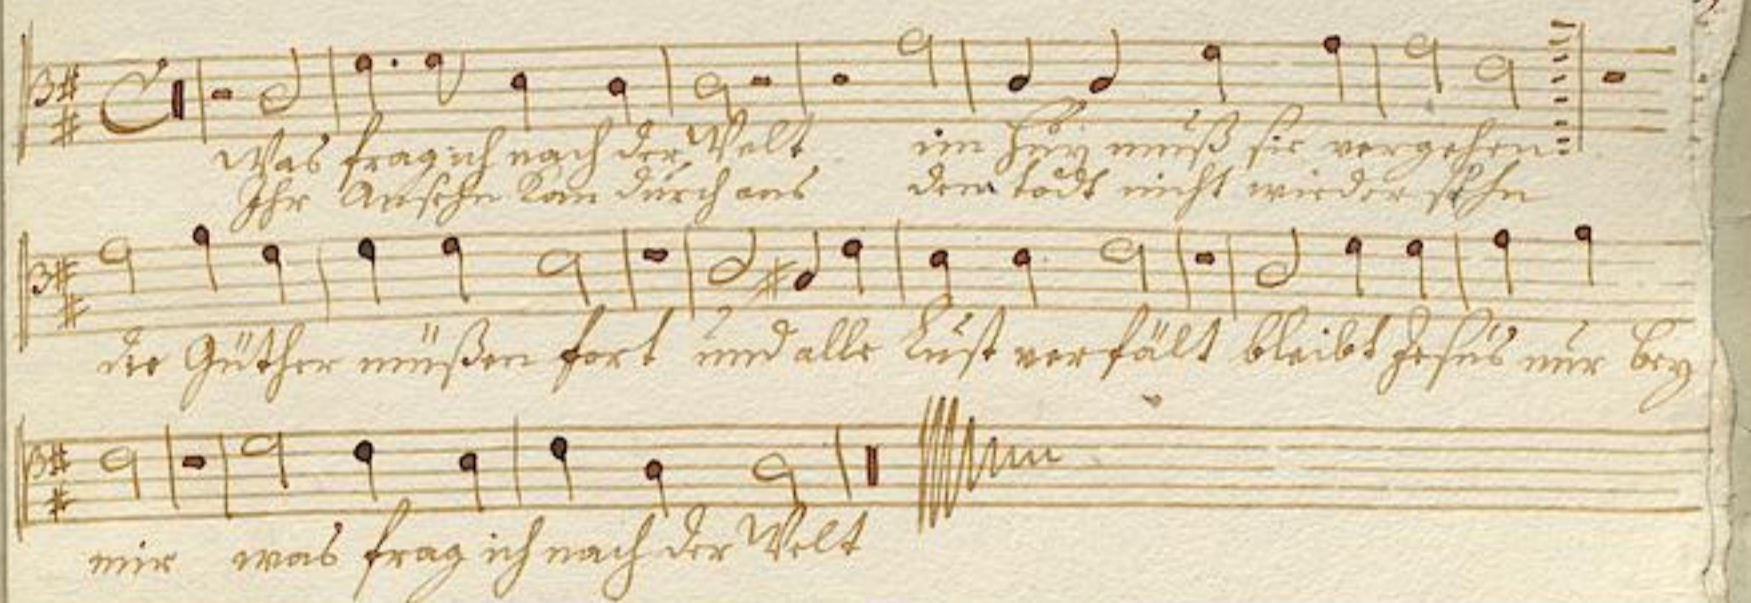 Was frag ich nach der Welt im Huy muß sie vergehen
Ihr Ansehn kan durchaus dem todt nicht wiederstehn
die Güther müßen fort und alle Lust verfält bleibt Jesus nur bey
mir was frag ich nach der Welt